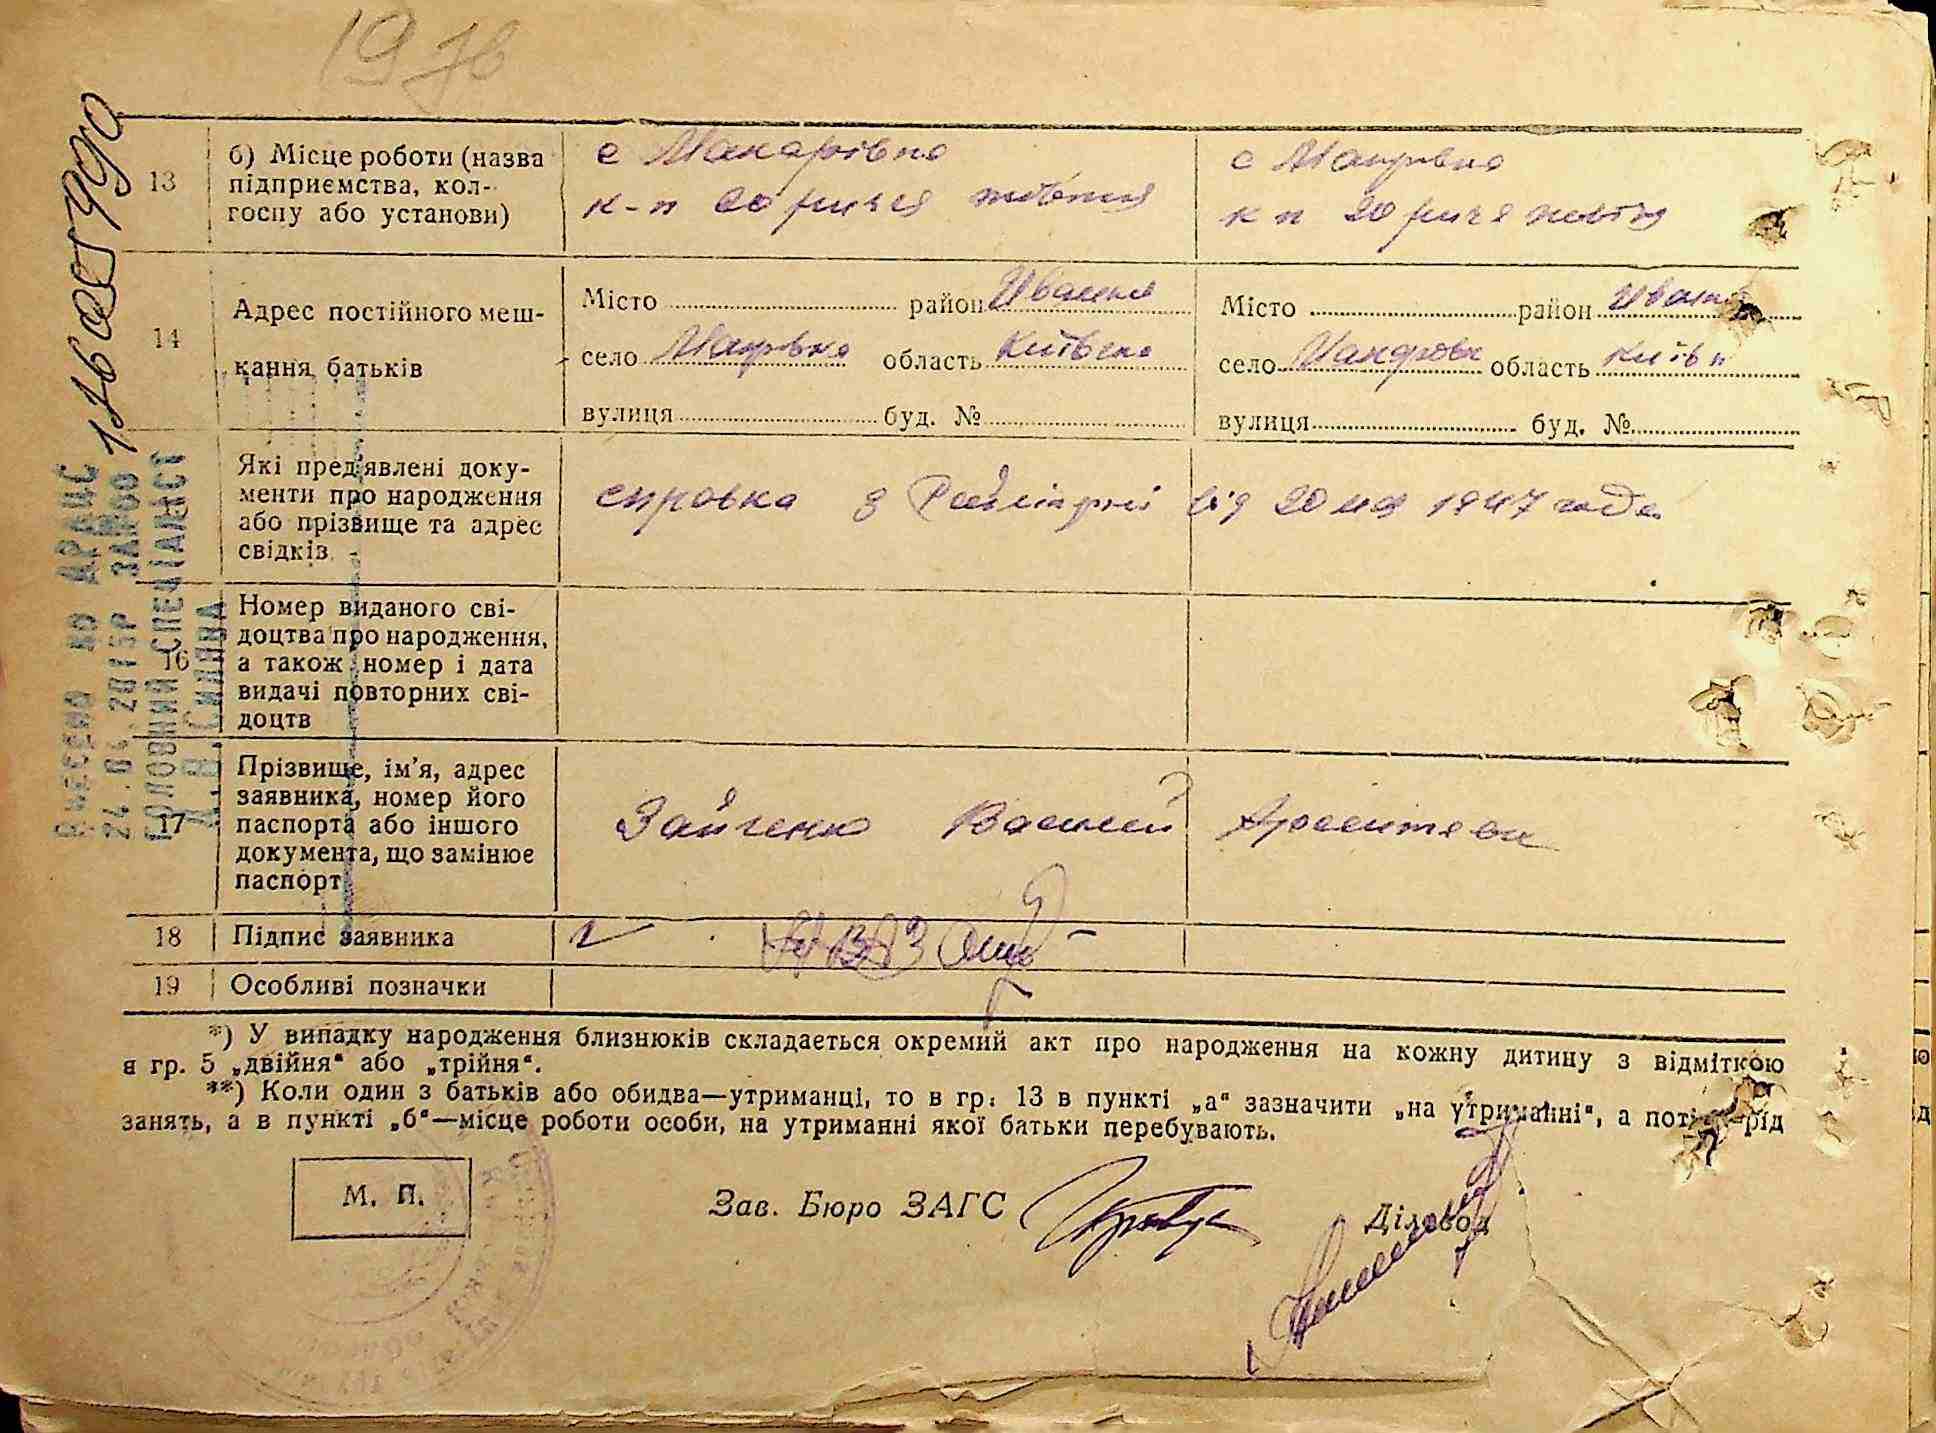 197в
11600587990
Внесено до АРАЦС
24.04.2015р
ГОЛОВНИЙ СПЕЦІАЛІСТ
13 б) Місце роботи (назва підприємства, кол-
госпу або установи)
с Макарівка
к-п 20 річчя жовтня
с Макрівка
к п 20 річя жовтня
14 Адрес постійного меш-
кання батьків
Місто район Іванків
село Макрівка область Київська
вулиця буд. №
Місто район Іванк
село Макарівк область Київ
вулиця буд. №
Які пред'явлені доку-
менти про народження
або прізвище та адрес
свідків
справка з від 20 1947 года
16 Номер виданого сві-
доцтва про народження,
а також номер і дата
видачі повторних сві-
доцтв
17 Прізвище, ім'я, адрес
заявника, номер його
паспорта або іншого
документа, що замінює
паспорт
Зайченко Василий
18 Підпис заявника
19 Особливі позначки
*) У випадку народження близнюків складається окремий акт про народження на кожну дитину з відміткою
в гр. 5 „двійня“ або „трійня“.
**) Коли один з батьків або обидва—утриманці, то в гр. 13 в пункті „а“ зазначити „на утриманні“, а рід
занять, а в пункті „б“—місце роботи особи, на утриманні якої батьки перебувають.
М. П.
Зав. Бюро ЗАГС
Діловод